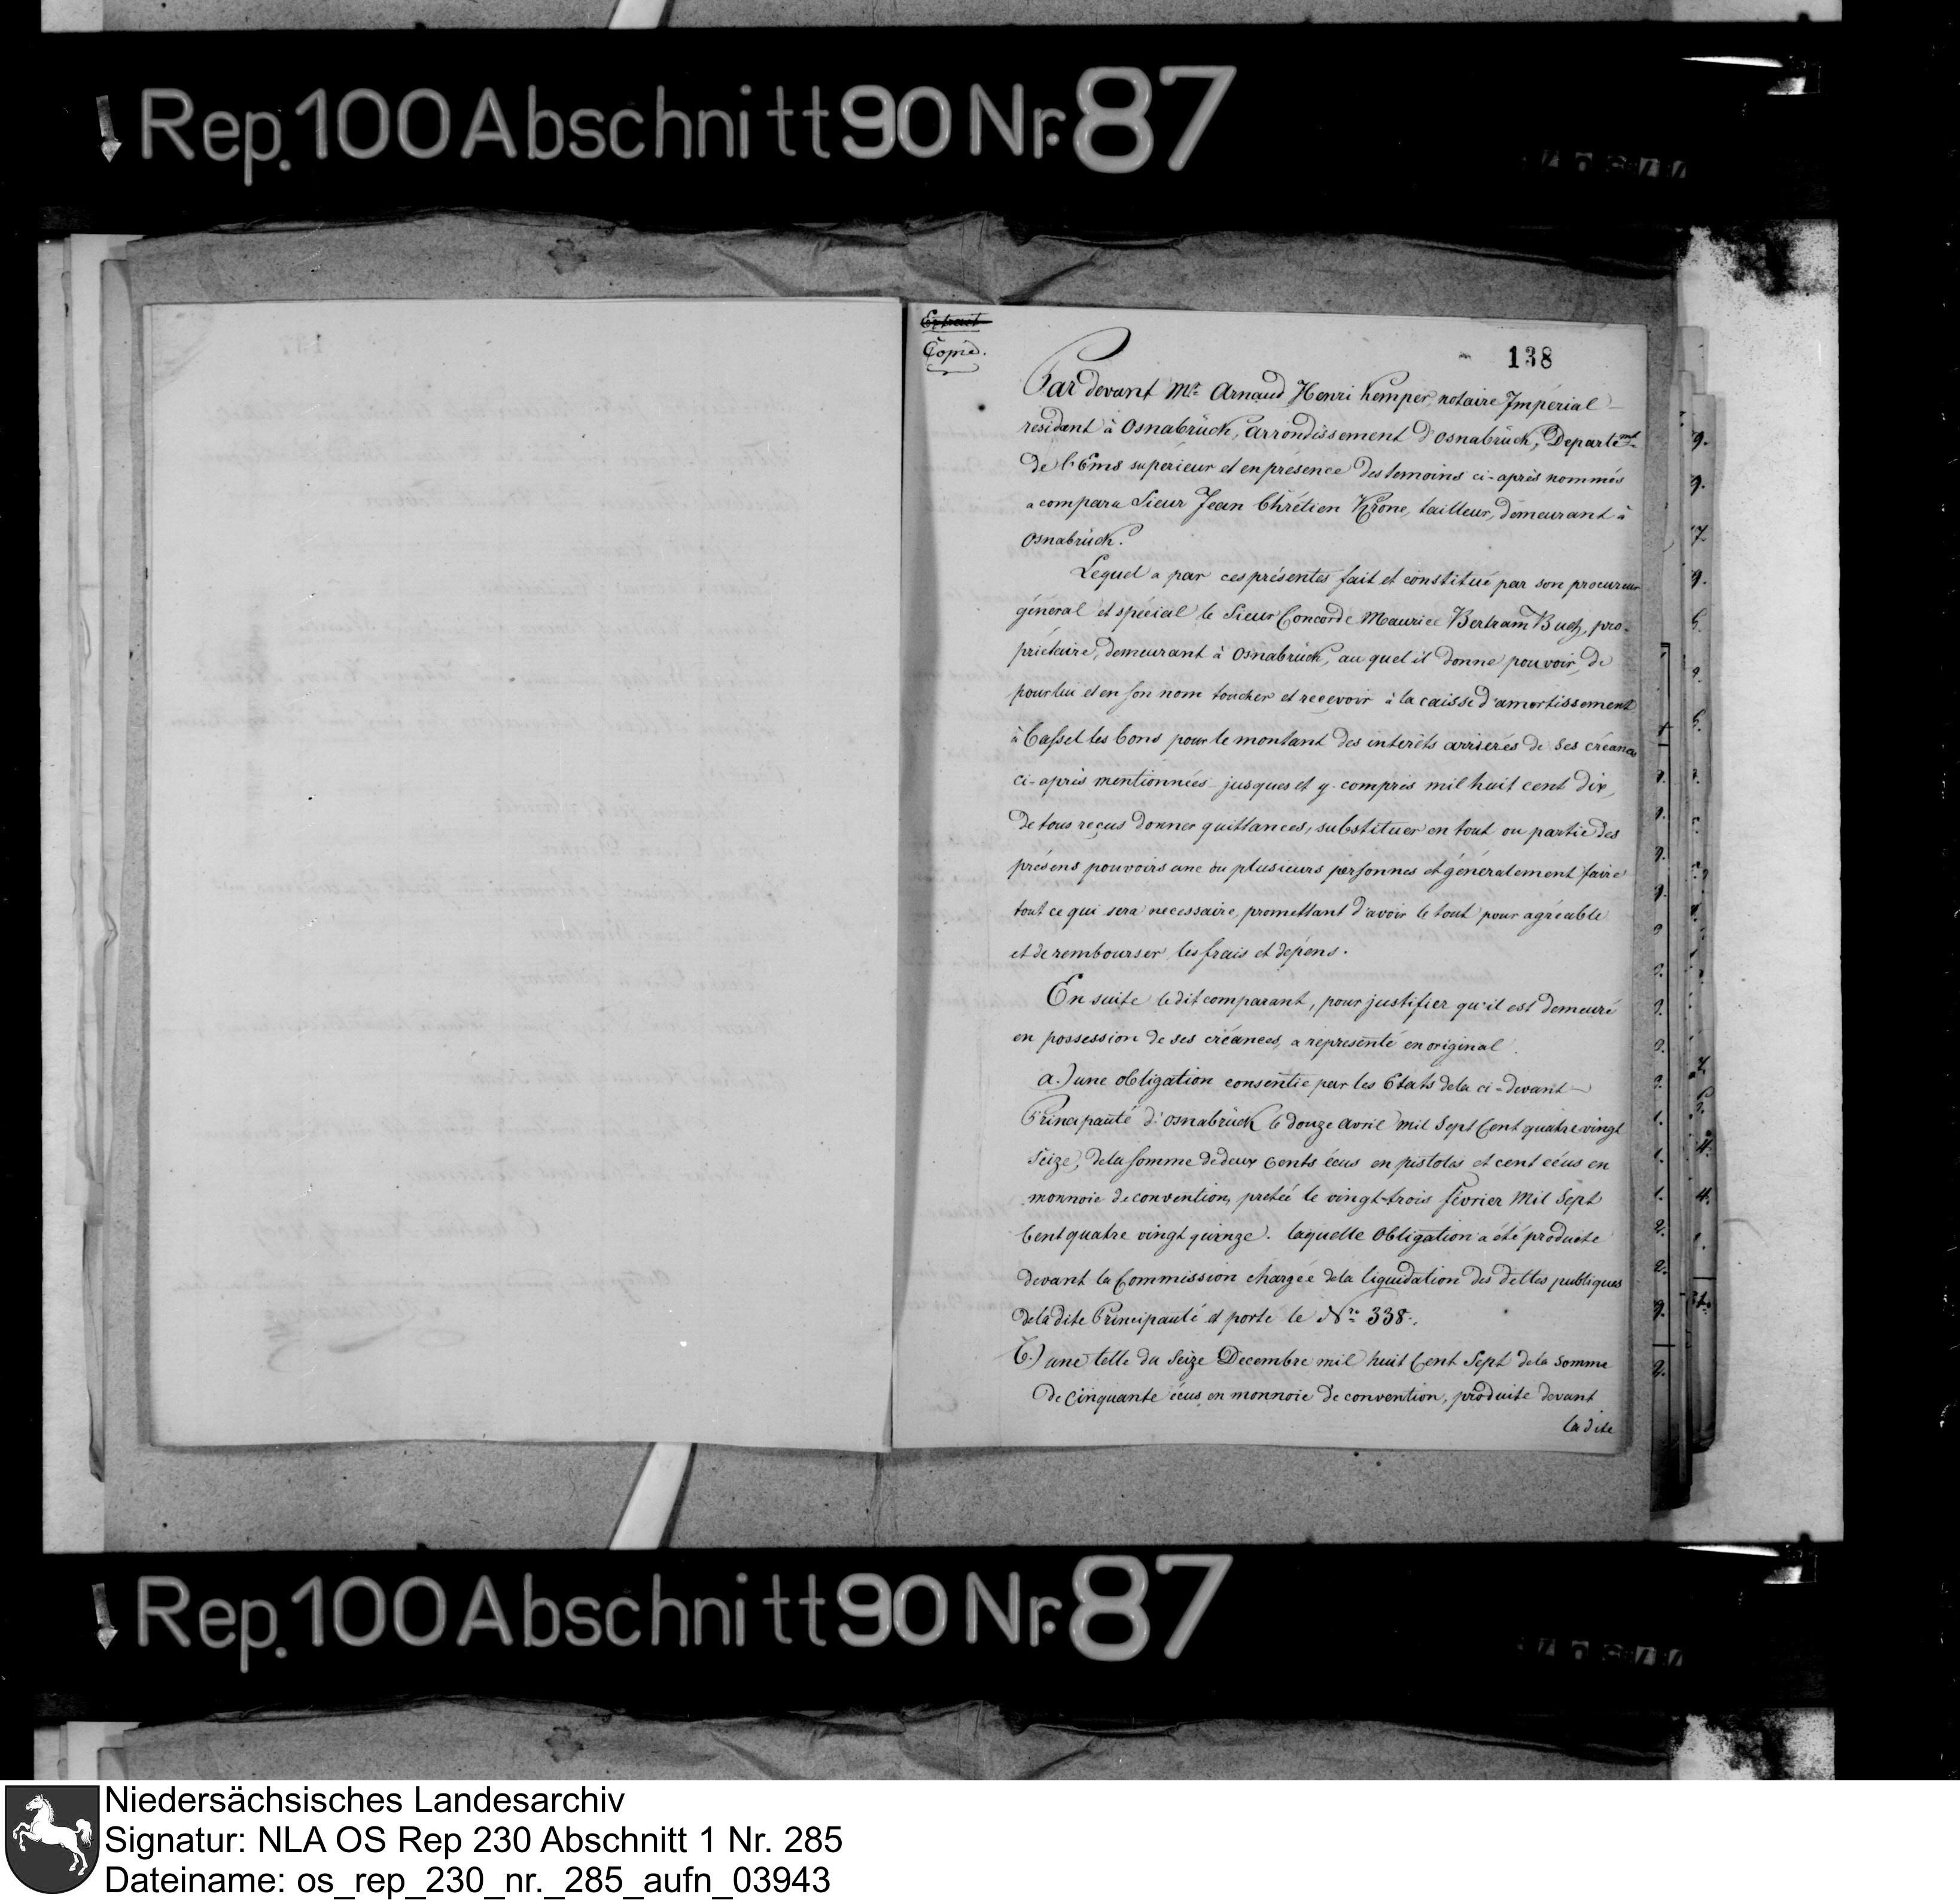 Rep. 100 Abschnitt 90 Nr. 87
Extrait
Copie.
138
Par devant Mr. Arnaud Henri Kemper, notaire Impérial
résidant à Osnabrück, arrondissement d'Osnabrück, Departemt.
de l'Ems superieur et en présence des temoins ci-après nommés
a comparu Sieur Jean Chrétien Krone, tailleur, demeurant à
Osnabrück.
Lequel a par ces présentes fait et constitué par son procureur
général et spécial le Sieur Concorde Maurice Bertram Buch, pro-
priétaire, demeurant à Osnabrück, au quel il donne pouvoir, de
pour lui et en son nom toucher et recevoir à la caisse d'amortissement
à Cassel les bons pour le montant des interêts arriérés de ses créances
ci-après mentionnées jusques et y compris mil huit cent dix,
de tous reçus donner quittances, substituer en tout ou partie des
présens pouvoirs une ou plusieurs personnes et généralement faire
tout ce qui sera necessaire, promettant d'avoir le tout pour agréable
et de rembourser les frais et dépens.
En suite le dit comparant, pour justifier qu'il est demeuré
en possession de ses créances, a representé en original
a.) une obligation consentie par les Etats de la ci-devant
Principauté d'Osnabrück le douze avril mil Sept Cent quatre vingt
Seize, de la somme de deux cents écus en pistoles et cent écus en
monnoie de convention, pretée le vingt-trois fevrier Mil Sept
Cent quatre vingt quinze. laquelle Obligation a été producte
devant la Commission chargée de la liquidation des dettes publiques
de la dite Principauté et porte le Nro. 338.
b.) une telle du Seize Decembre mil huit Cent Sept de la somme
de Cinquante écus en monnoie de convention, produite devant
la dite
Rep. 100 Abschnitt 90 Nr. 87
Niedersächsisches Landesarchiv
Signatur: NLA OS Rep 230 Abschnitt 1 Nr. 285
Dateiname: os_rep_230_nr._285_aufn_03943